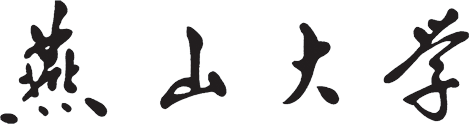 燕山大学